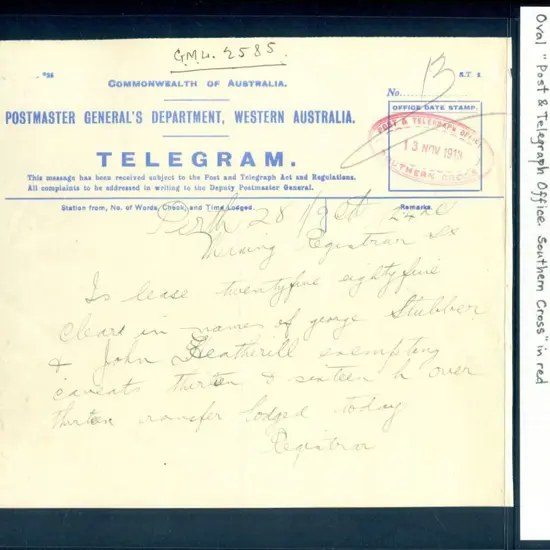 G.M.L. 2585.
COMMONWEALTH OF AUSTRALIA.
No. 13
R.T. 2
POSTMASTER GENERAL'S DEPARTMENT, WESTERN AUSTRALIA.
OFFICE DATE STAMP.
POST & TELEGRAPH OFFICE
13 NOV 1918
SOUTHERN CROSS
TELEGRAM.
This message has been received subject to the Post and Telegraph Act and Regulations.
All complaints to be addressed in writing to the Deputy Postmaster General.
Station from, No. of Words, Check, and Time Lodged.
Remarks.
Perth 28
Mining Registrar Sx
Is lease twentyfive eightyfive
clear in names of george Stubber
& John Heatherill exempting
caveats thirteen & sixteen h over
thirteen transfer lodged today
Registrar
Oval "Post & Telegraph Office Southern Cross" in red